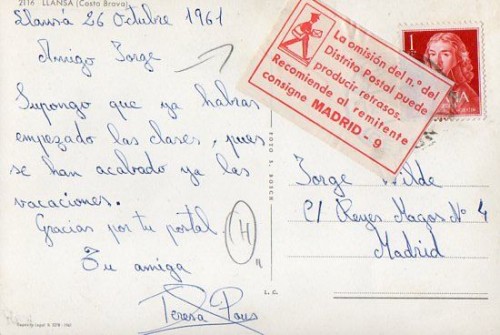 2116 LLANSA (Costa Brava)
Llansá 26 Octubre 1961
Amigo Jorge
Supongo que ya habras
empezado las clases, pues
se han acabado ya las
vacaciones.
Gracias por tu postal.
Tu amiga
Teresa Pous
H
FOTO S. BOSCH
L. C.
La omisión del n.º del
Distrito Postal puede
producir retrasos.
Recomiende al remitente
consigne MADRID - 9
1
Jorge Wilde
C/ Reyes Magos Nº 4
Madrid